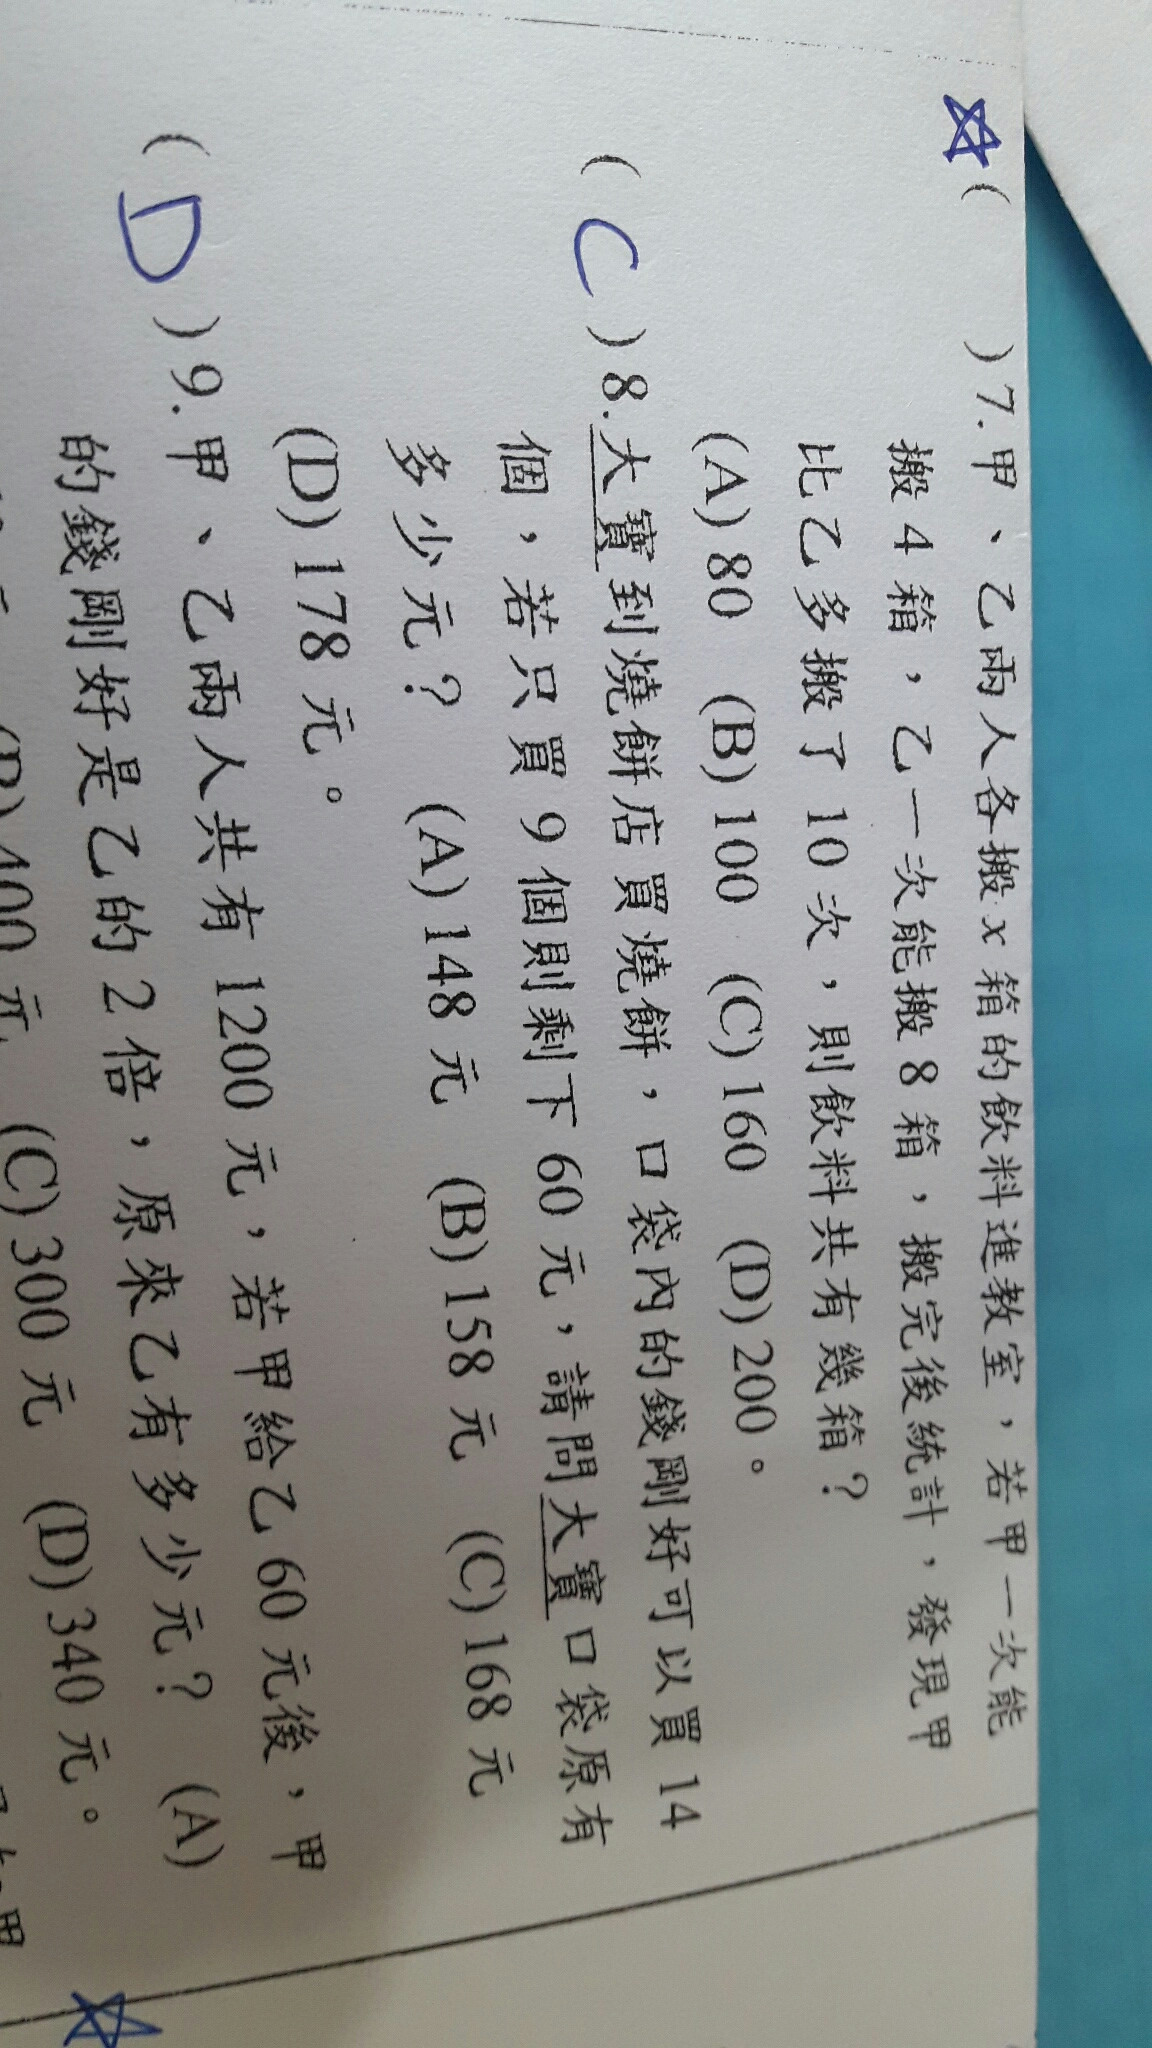 ( )7.甲、乙兩人各搬 x 箱的飲料進教室，若甲一次能
搬 4 箱，乙一次能搬 8 箱，搬完後統計，發現甲
比乙多搬了 10 次，則飲料共有幾箱？
(A) 80 (B) 100 (C) 160 (D) 200。
( C )8.大寶到燒餅店買燒餅，口袋內的錢剛好可以買 14
個，若只買 9 個則剩下 60 元，請問大寶口袋原有
多少元？ (A) 148 元 (B) 158 元 (C) 168 元
(D) 178 元。
( D )9.甲、乙兩人共有 1200 元，若甲給乙 60 元後，甲
的錢剛好是乙的 2 倍，原來乙有多少元？ (A)
(B) 400 元 (C) 300 元 (D) 340 元。